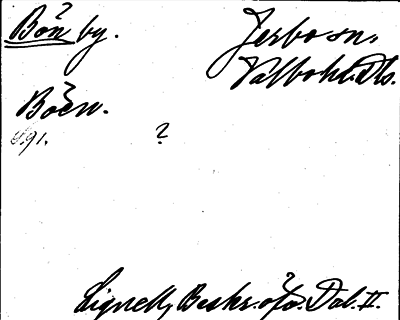 Bön by.
Järbo sn,
Valbo hd. Dls.
Böen.
s. 91.
?
Lignell, Beskr. öfv. Dal. II.